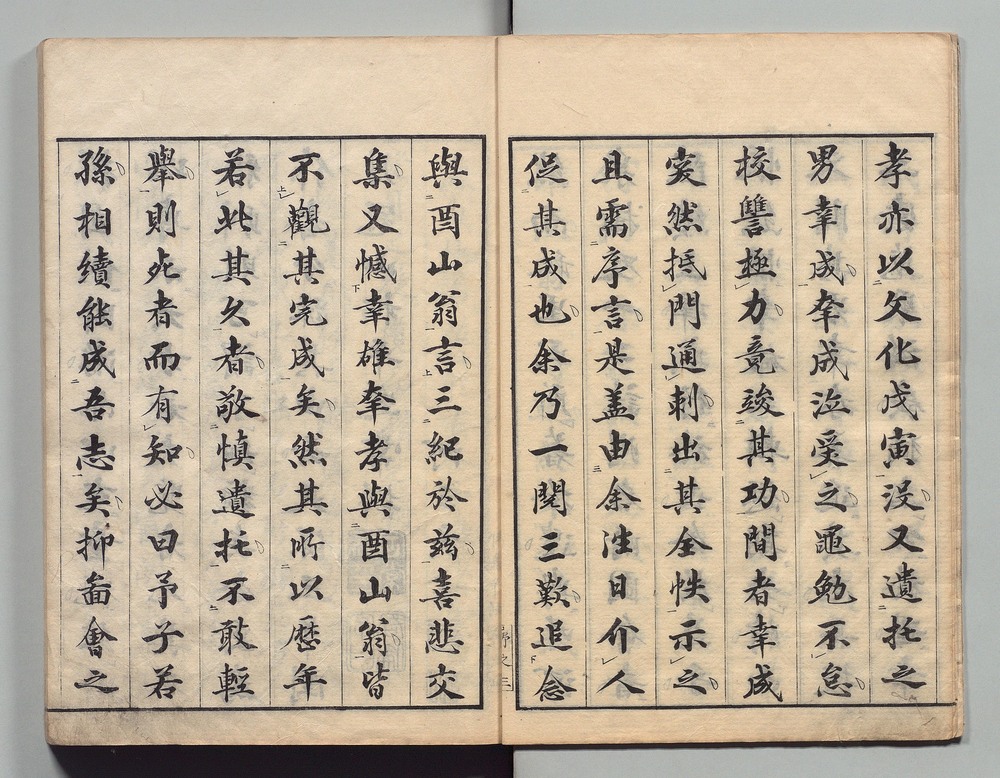 孝亦以文化戊寅没又遺托之
男幸成幸成泣受之黽勉不怠
校讐極力竟竣其功間者幸成
突然抵門通刺出其全帙示之
且需序言是蓋由余往日介人
促其成也余乃一閲三歎追念
序之三
與酉山翁言三紀於兹喜悲交
集又憾幸雄幸孝與酉山翁皆
不觀其完成矣然其所以歴年
若此其久者敬慎遺托不敢輕
舉則死者而有知必曰予子若
孫相續能成吾志矣抑啚會之